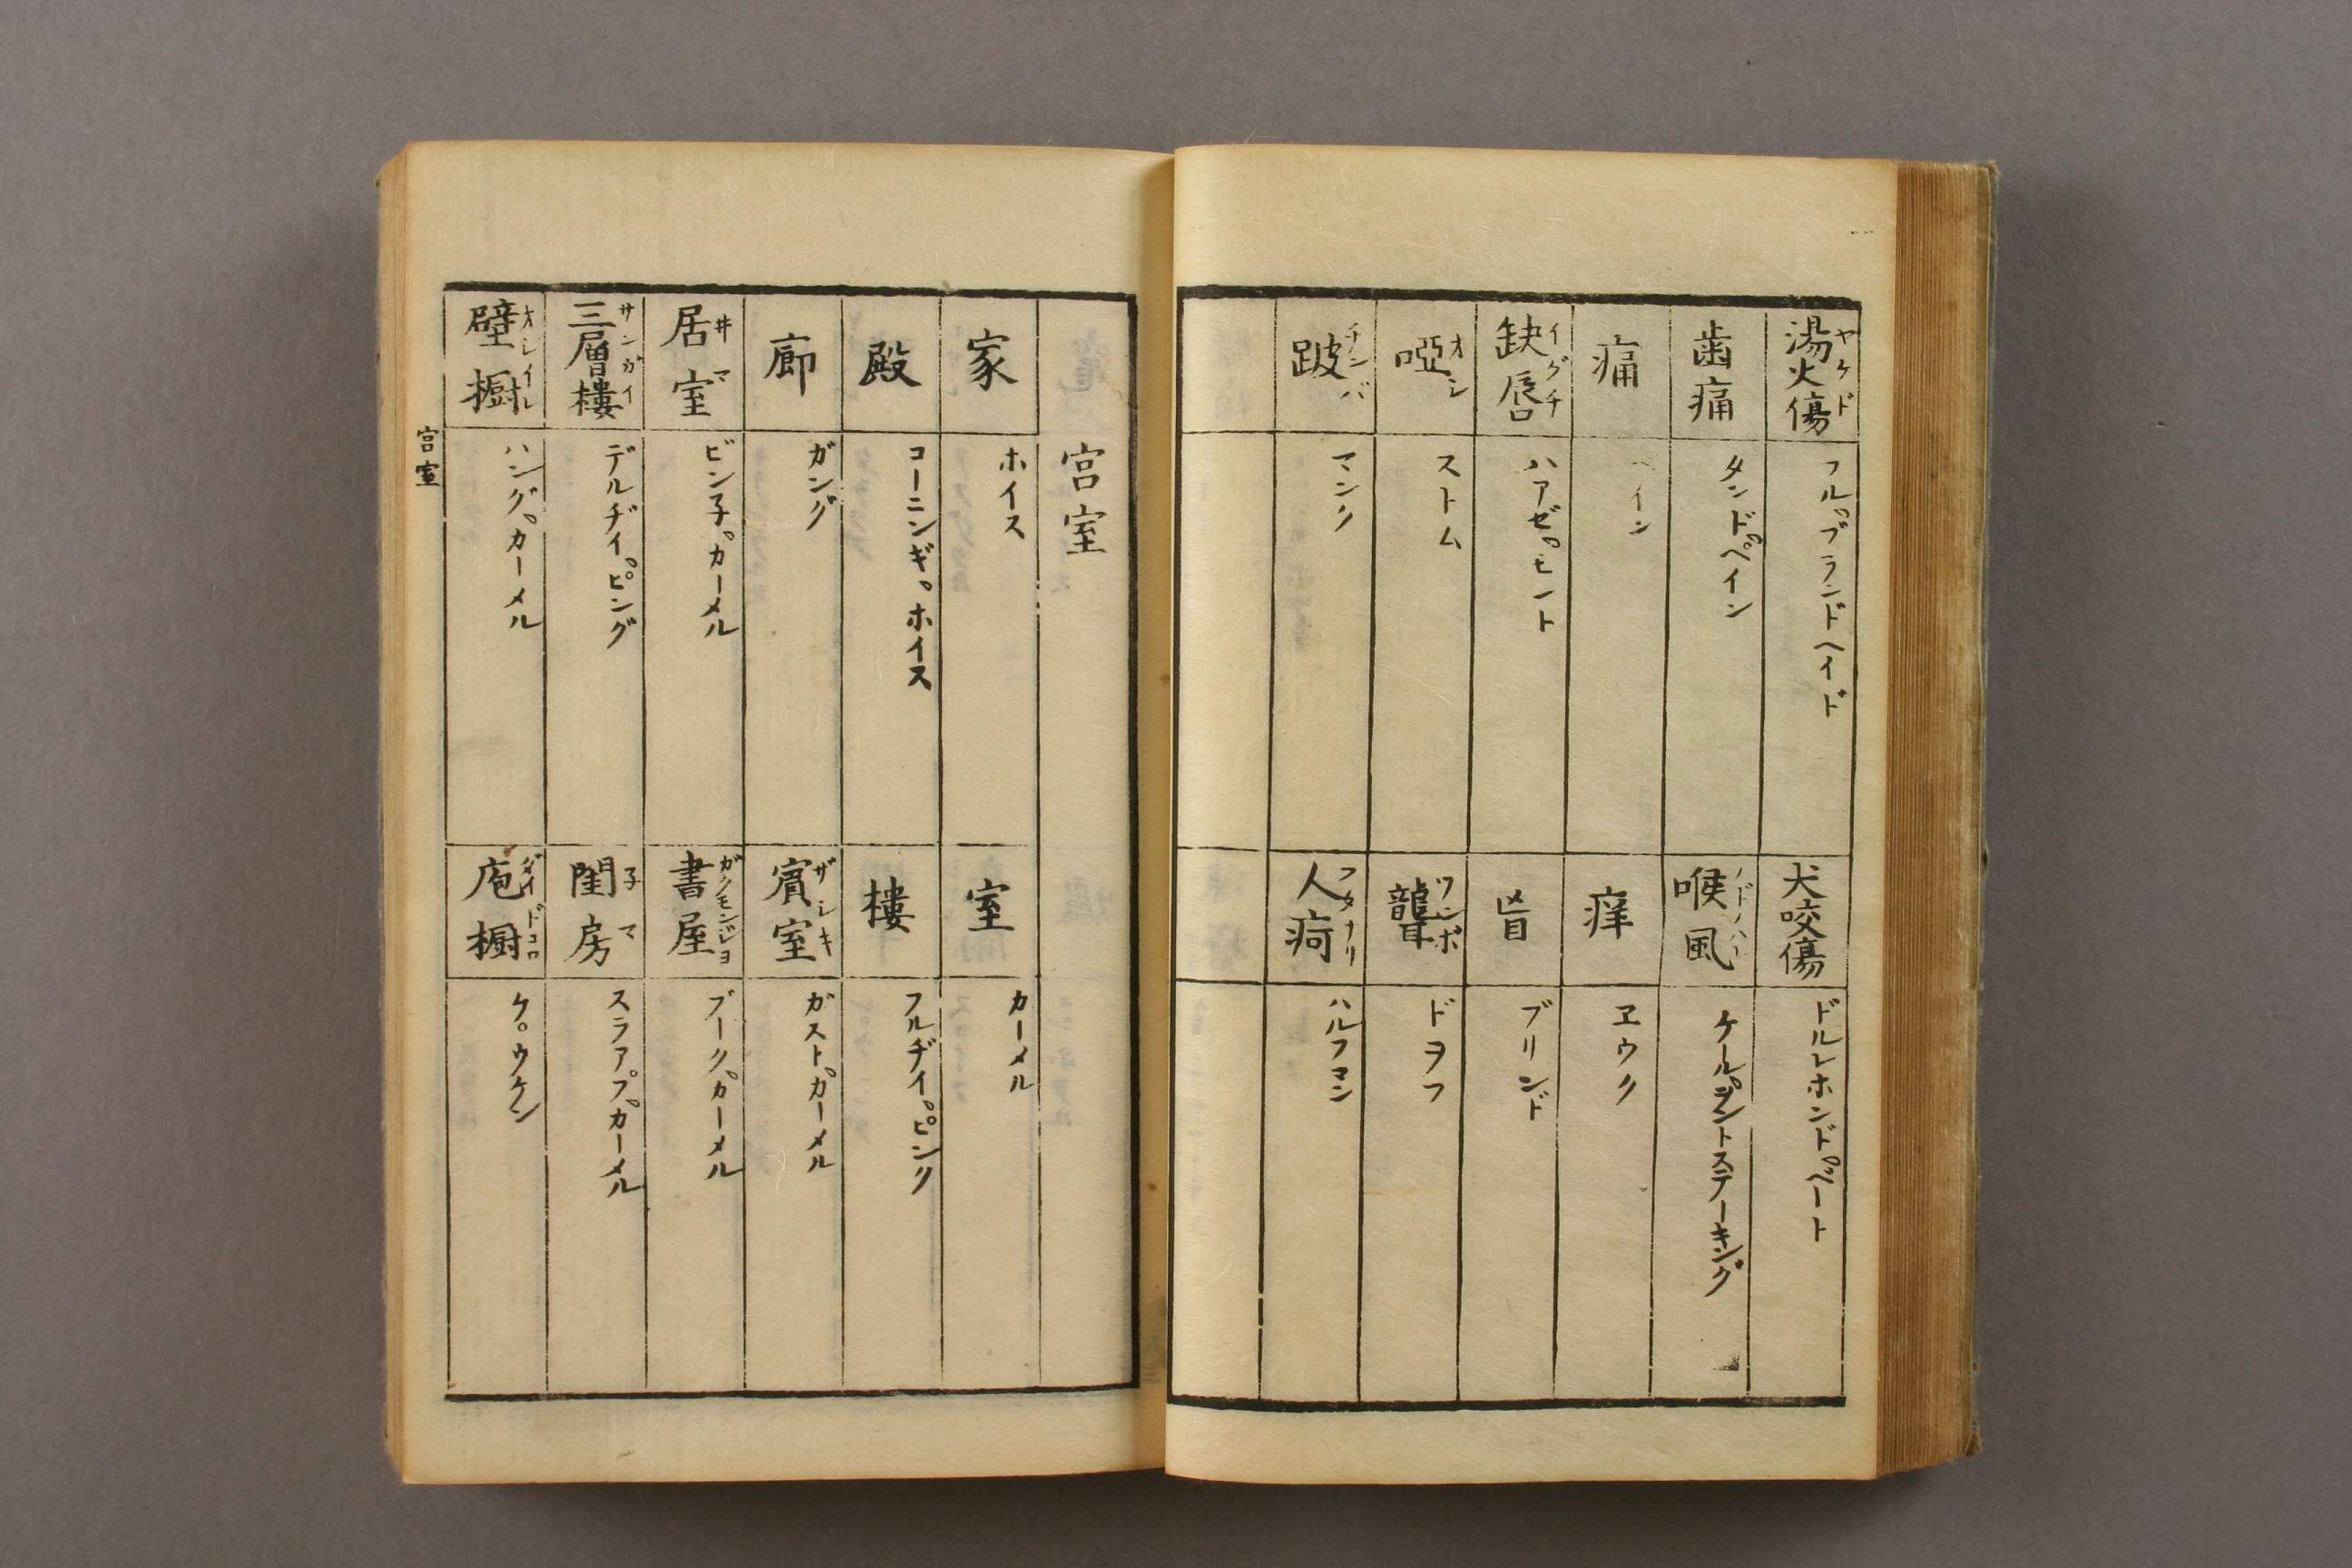 湯火傷 ヤケド
フルブランドヘイド
犬咬傷
ドルレホンドベート
歯痛
タンドペイン
喉風
痛
痒
ヱウク
缺唇 イグチ
ハアゼモント
盲
ブリンド
啞 オシ
ストム
聾 ツンボ
ドヲフ
跛 チンバ
マンク
人痾 フタナリ
ハルフマン
宮室
家
ホイス
室
カーメル
殿
コーニンギ。ホイス
樓
フルヂイ。ピング
廊
ガング
賓室 ザシキ
ガスト。カーメル
居室 井マ
ビン子。カーメル
書屋 ガクモンジヨ
ブーク。カーメル
三層樓 サンガイ
デルヂイ。ピング
閨房 子マ
スラアプ。カーメル
壁橱 オシイレ
ハング。カーメル
庖橱 ダイドコロ
ケ。ウケン
宮室